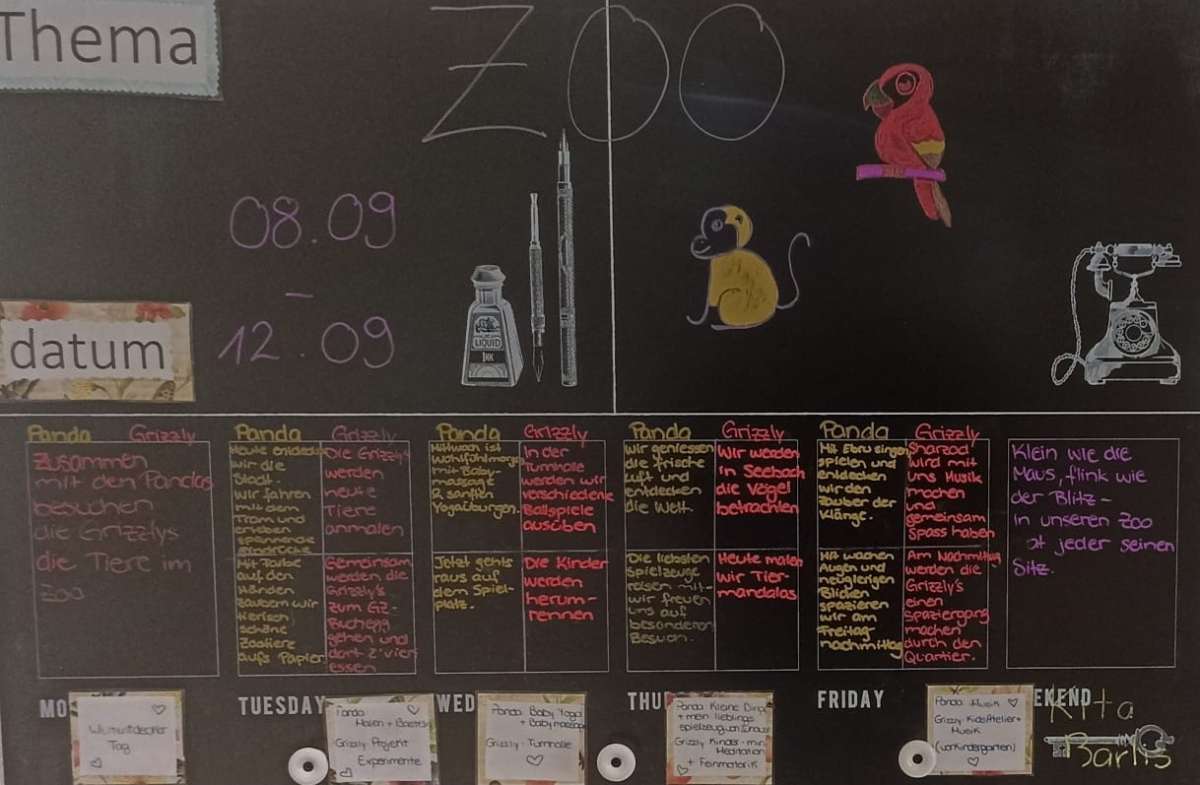 Thema
ZOO
08.09
-
12.09
datum
LIQUID
INK
Panda Grizzly
Zusammen
mit den Pandas
besuchen
die Grizzlys
die Tiere im
Zoo
Panda
Heute entdecken
wir die
Stadt.
Wir fahren
mit dem
Tram und
erleben
spannende
Eindrücke
Mit Farbe
auf den
Händen
zaubern wir
tierisch
schöne
Zootiere
aufs Papier
Grizzly
Die Grizzlys
werden
heute
Tiere
anmalen
Gemeinsam
werden die
Grizzly's
zum GZ-
Buchegg
gehen und
dort z'vieri
essen
Panda
Mittwoch ist
mit Baby-
massage
& sanften
Yogaübungen.
Jetzt gehts
raus auf
dem Spiel-
platz.
Grizzly
In der
Turnhalle
werden wir
verschiedene
Ballspiele
ausüben
Die Kinder
werden
herum-
rennen
Panda
Wir geniessen
die frische
Luft und
entdecken
die Welt.
Die liebsten
Spielzeuge
reisen mit-
wir freuen
uns auf
besonderen
Besuch.
Grizzly
Wir werden
in Seebach
die Vögel
betrachten
Heute malen
wir Tier-
mandalas
Panda
Mit Ebru singen
spielen und
entdecken
wir den
Zauber der
Klänge.
Mit wachen
Augen und
neugierigen
Blicken
spazieren
wir am
Freitag
nachmittag
Grizzly
Sharzod
wird mit
uns Musik
machen
und
gemeinsam
Spass haben
Am Nachmittag
werden die
Grizzly's
einen
Spaziergang
machen
durch den
Quartier.
Klein wie die
Maus, flink wie
der Blitz -
in unseren Zoo
at jeder seinen
Sitz.
MO
TUESDAY
WED
THU
FRIDAY
EKEND
Tag
Panda
Malen + Basteln
Grizzly-Projekt
Experimente
Panda Baby Yoga
+ Babymassage
Grizzly-Turnhalle
Panda Kleine Dinge
+ mein lieblings
Grizzly Kinder-
Meditation
+ Feinmotorik
Panda Musik
Grizzly-KidsAtelier+
Musik
(vorKindergarten)
Kita
Barlis